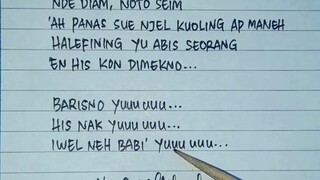 NDE DIAM, NOTO SEIM
'AH PANAS SUE NJEL KUOLING AP MANEH
HALEFINING YU ABIS SEORANG
'EN HIS KON DIMEKNO...
BARISNO YUUU UUU...
HIS NAK YUUU UUU...
IWEL NEH BABI' YUUU UUU...